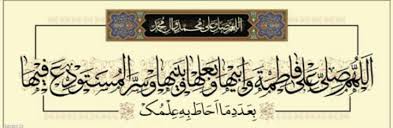 اللهم صل علی محمد و آل محمد
اَللّهُمَّ صَلِّ عَلی فاطِمَةَ وَ اَبیها وَ بَعْلِها وَ بَنیها وَ سِرِّ الْمُسْتَوْدَعِ فیها
بِعَدَدِ ما اَحاطَ بِهِ عِلْمُکَ